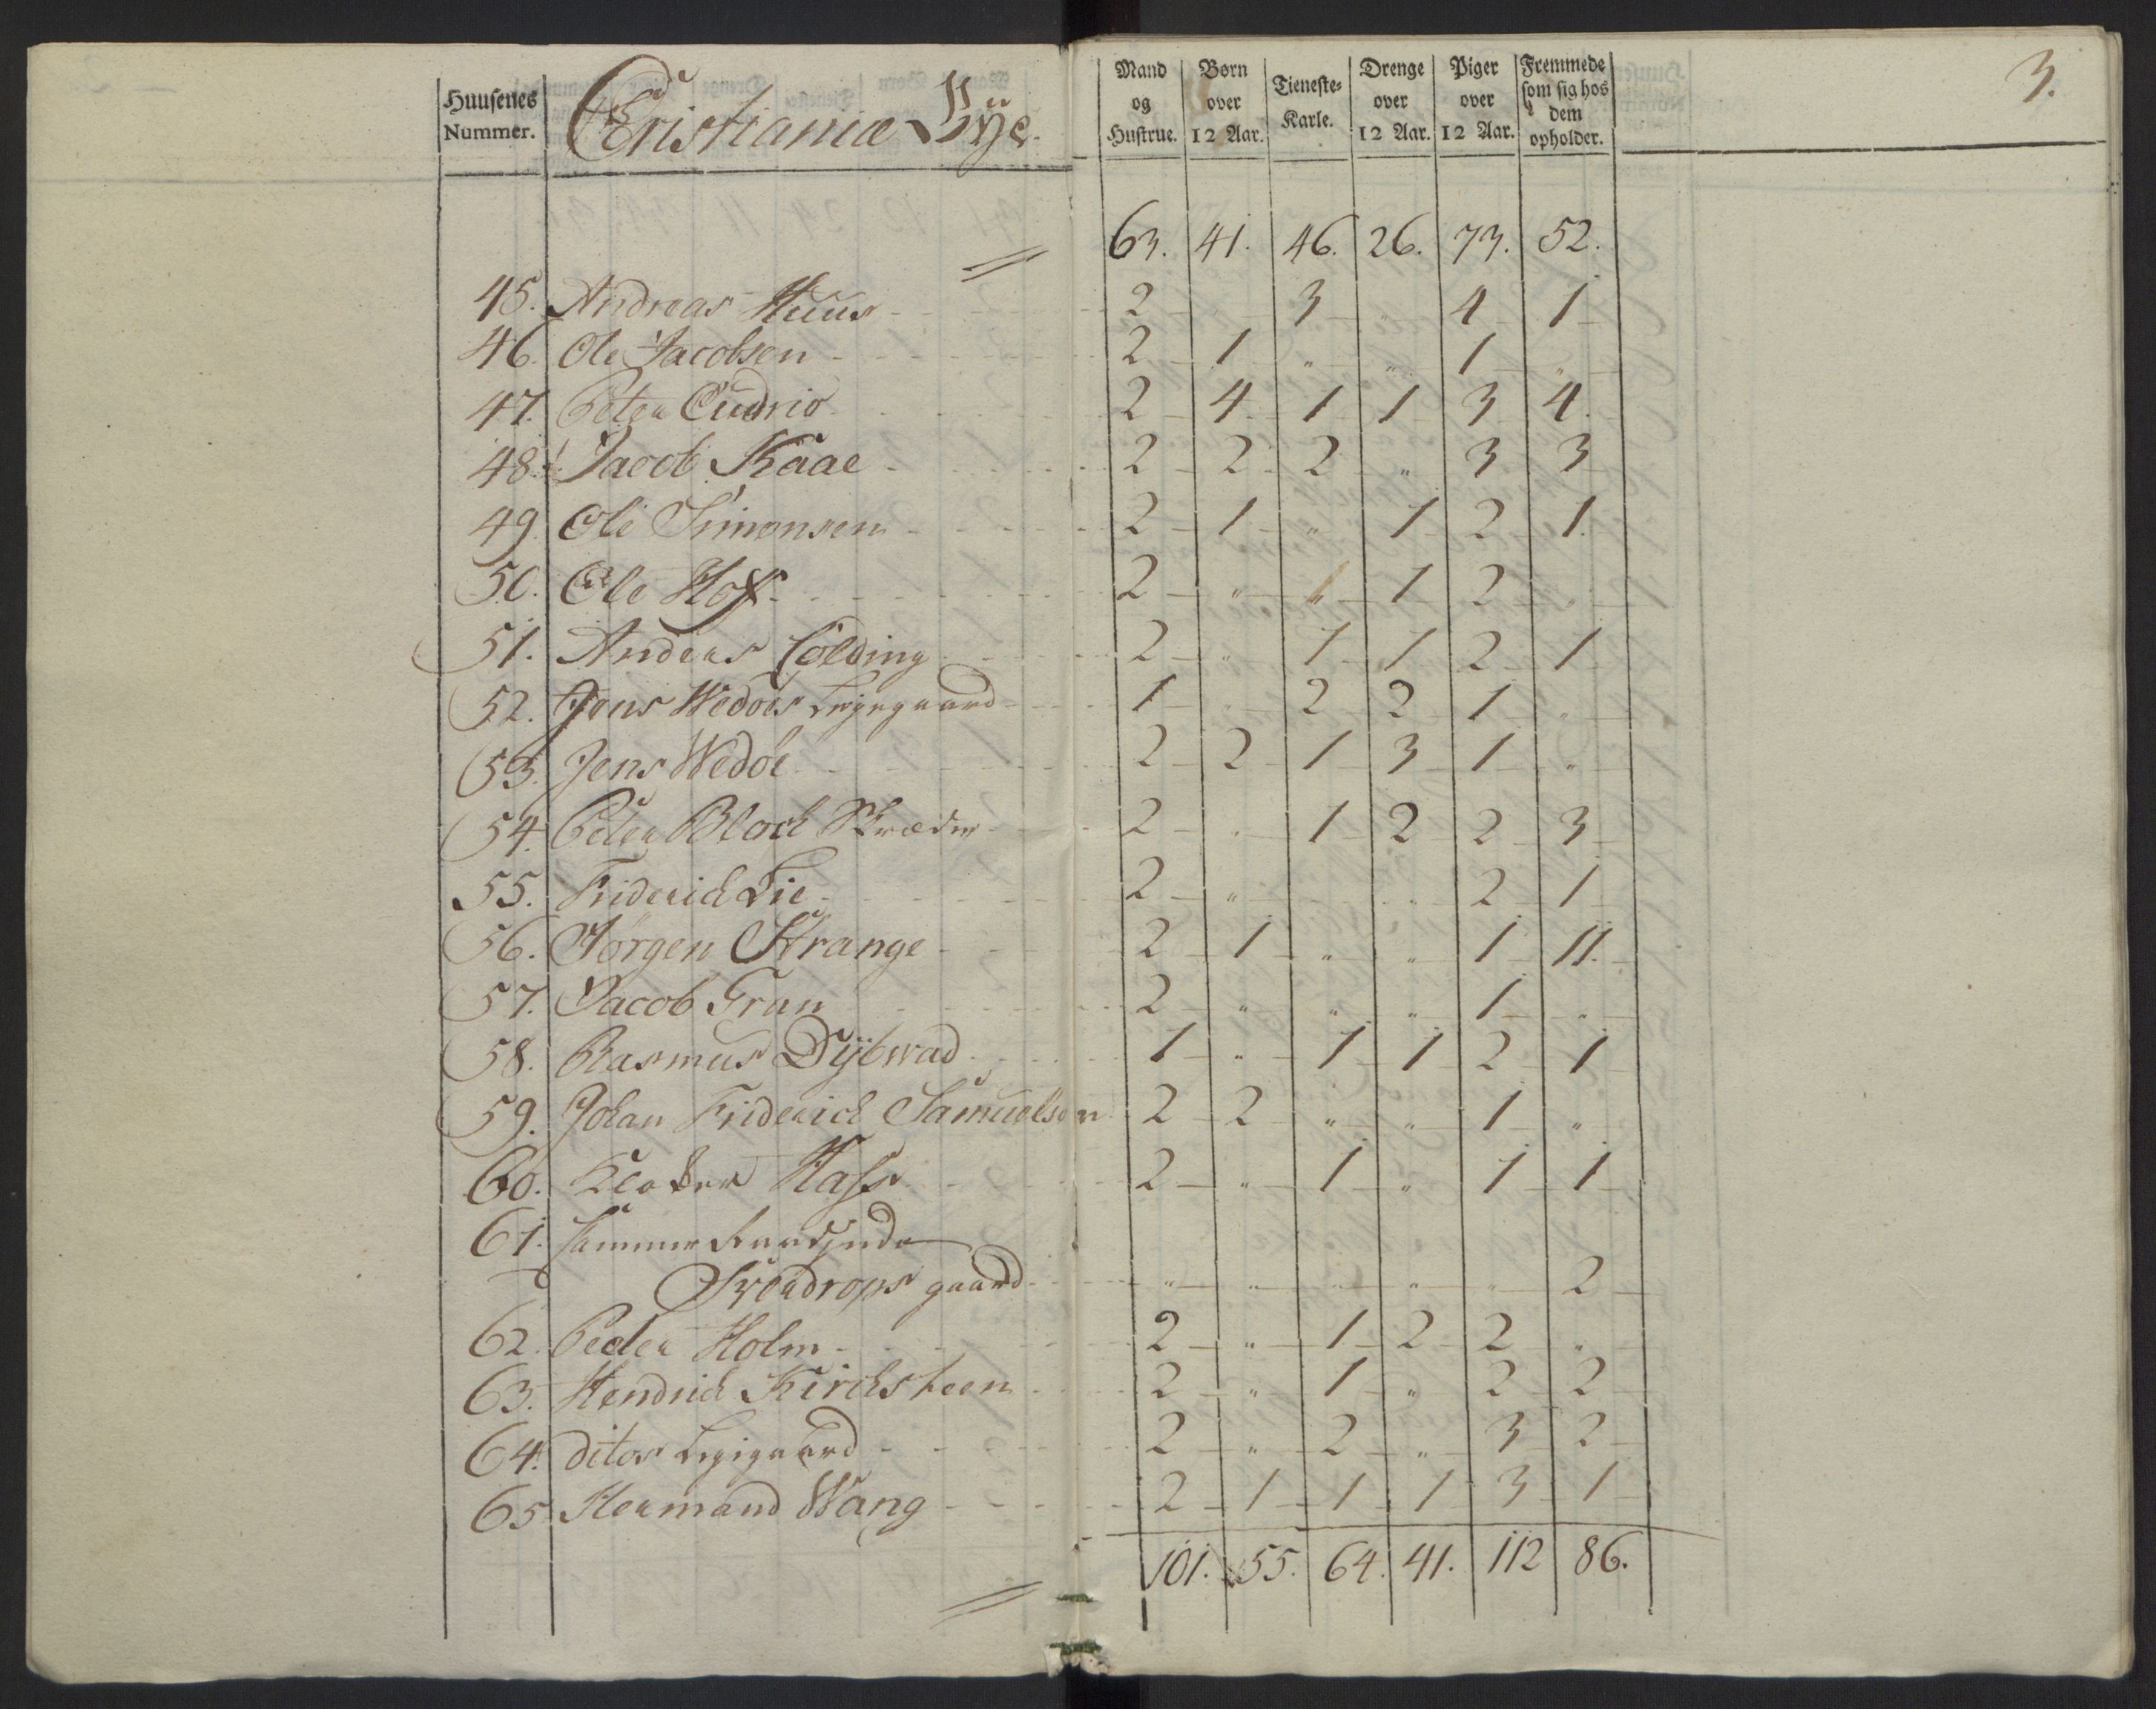 3.
Huusenes Nummer. | Christianiæ Bÿe. | Mand og Hustrue. | Børn over 12 Aar. | Tieneste-Karle. | Drenge over 12 Aar. | Piger over 12 Aar. | Fremmede som sig hos dem opholder.
63. | 41. | 46. | 26. | 73. | 52.
45. Andreas Huus | 2 | " | 3 | " | 4 | 1
46. Ole Jacobsen | 2 | 1 | " | " | 1 | "
47. Peter Cudrio | 2 | 4 | 1 | 1 | 3 | 4.
48. Jacob Kaae | 2 | 2 | 2 | " | 3 | 3
49. Ole Simonsen | 2 | 1 | " | 1 | 2 | 1.
50. Ole Hof | 2 | " | " | 1 | 2 | "
51. Anders Colding | 2 | " | 1 | 1 | 2 | 1
52. Jens Wedøes Leyegaard | 1 | " | 2 | 2 | 1 | "
53. Jens Wedöe | 2 | 2 | 1 | 3 | 1 | "
54. Peter Bloch Skræder | 2 | " | 1 | 2 | 2 | 3
55. Friderich Lie | 2 | " | " | " | 2 | 1
56. Jörgen Strange | 2 | 1 | " | " | 1 | 11.
57. Jacob Gran | 2 | " | " | " | 1 | "
58. Rasmus Dÿbwad | 1 | " | 1 | 1 | 2 | 1
59. Johan Friderich Samuelsen | 2 | 2 | " | " | 1 | "
60. Kloker Hass | 2 | " | 1 | " | 1 | 1
61. Cammer
gaard | " | " | " | " | " | 2
62. Peder Holm | 2 | " | 1 | 2 | 2 | "
63. Hendrich Kirchsteen | 2 | " | 1 | " | 2 | 2
64. ditos Leyegaard | 2 | " | 2 | " | 3 | 2
65 Hermand Wang | 2 | 1 | 1 | 1 | 3 | 1
101. | 55. | 64. | 41. | 112 | 86.